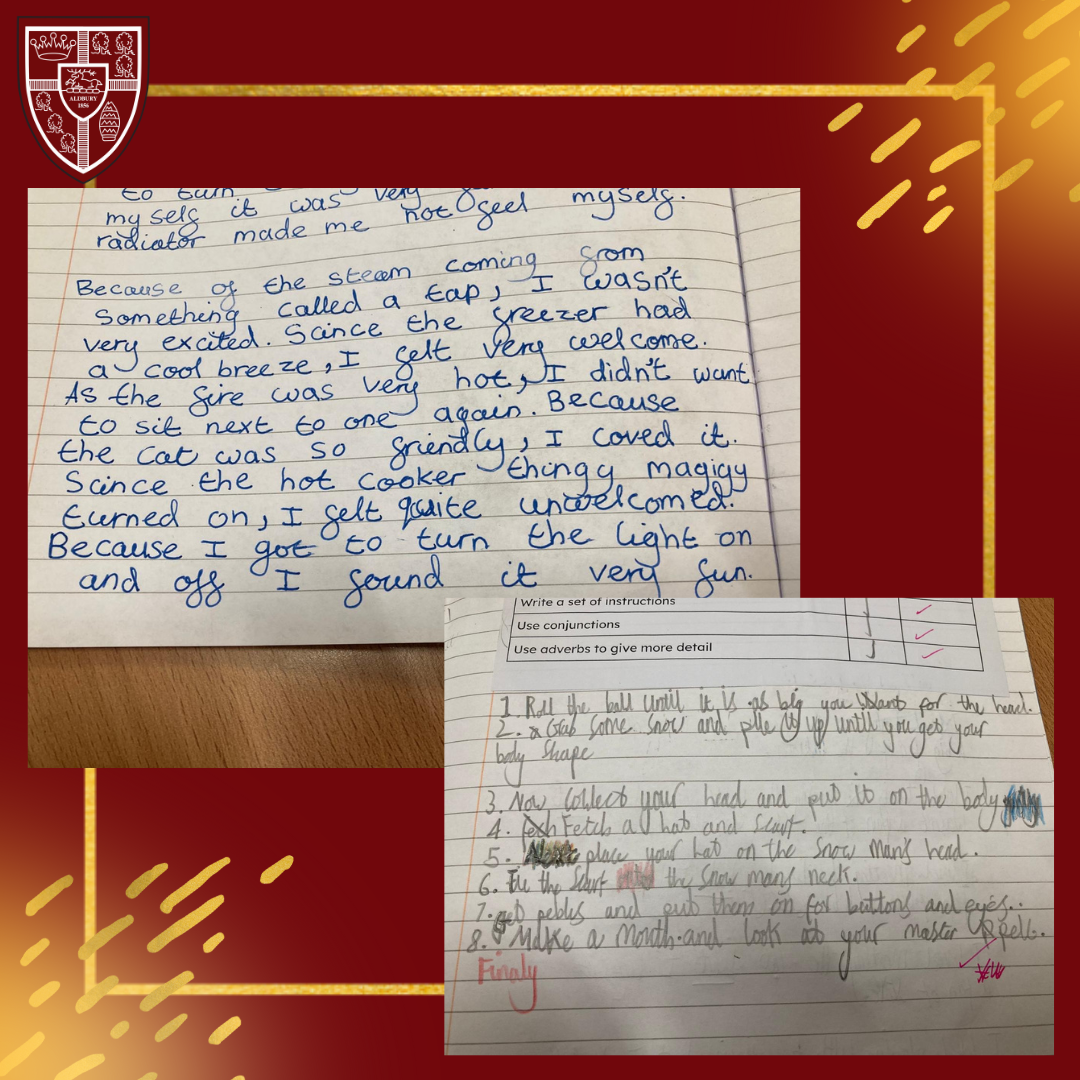 ALDBURY
1856
to turn very
my self it was not feel myself.
radiator made me
Because of the steam coming from
Something called a tap, I wasn't
very excited. Scince the freezer had
a cool breeze, I felt very welcome.
As the fire was very hot, I didn't want
to sit next to one again. Because
the cat was so friendly, I loved it.
Scince the hot cooker thingy magigy
turned on, I felt quite unwelcomed.
Because I got to turn the light on
and off I found it very fun.
Write a set of instructions
Use conjunctions
Use adverbs to give more detail
1. Roll the ball until it is as big you want for the head.
2. Grab some snow and pile it up until you get your
body shape
3. Now collect your head and put it on the body
4. Fetch a hat and scarf.
5. place your hat on the snow mans head.
6. the scarf the snow mans neck.
7. get pebles and put them on for buttons and eyes..
8. Make a mouth. and look at your master
Finaly